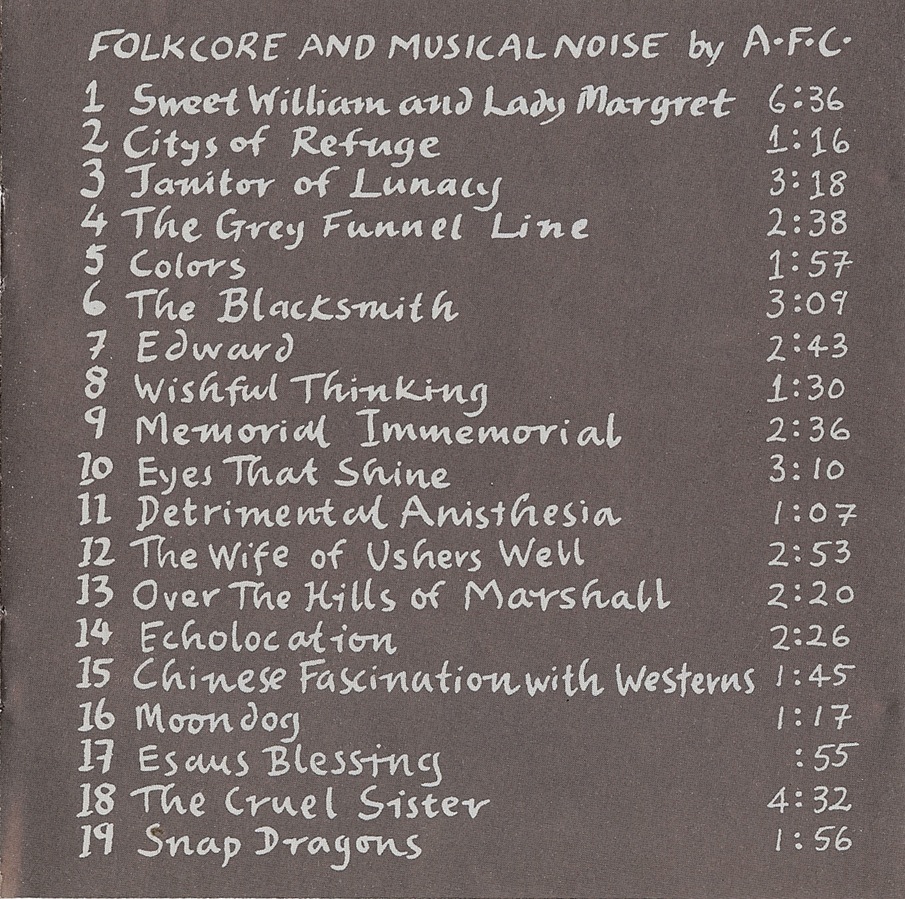 FOLKCORE AND MUSICAL NOISE by A·F·C·
1 Sweet William and Lady Margret 6:36
2 Citys of Refuge 1:16
3 Janitor of Lunacy 3:18
4 The Grey Funnel Line 2:38
5 Colors 1:57
6 The Blacksmith 3:09
7 Edward 2:43
8 Wishful Thinking 1:30
9 Memorial Immemorial 2:36
10 Eyes That Shine 3:10
11 Detrimental Anisthesia 1:07
12 The Wife of Ushers Well 2:53
13 Over The Hills of Marshall 2:20
14 Echolocation 2:26
15 Chinese Fascination with Westerns 1:45
16 Moondog 1:17
17 Esaus Blessing :55
18 The Cruel Sister 4:32
19 Snap Dragons 1:56